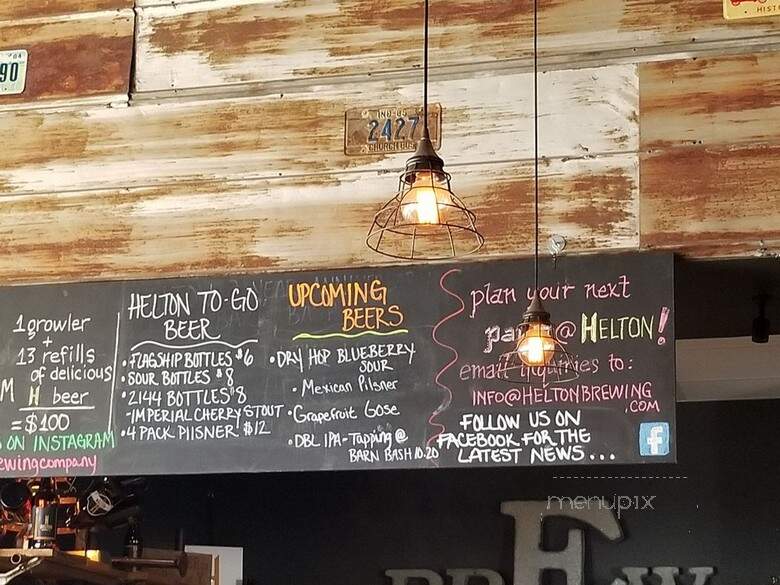 90
IND-85
2427
1 growler
+
13 refills
of delicious
M H beer
= $100
ON INSTAGRAM
ewingcompany
HELTON TO-GO
BEER
• FLAGSHIP BOTTLES $6
• SOUR BOTTLES $8
• 2144 BOTTLES $8
-IMPERIAL CHERRY STOUT
• 4 PACK PILSNER $12
UPCOMING
BEERS
• DRY HOP BLUEBERRY
SOUR
• Mexican Pilsner
• Grapefruit Gose
• DBL IPA-Tapping @
BARN BASH 10.20
plan your next
pa @ HELTON!
email inquiries to:
INFO@HELTONBREWING
.COM
FOLLOW US ON
FACEBOOK FOR THE
LATEST NEWS...
f
menupix
BREW